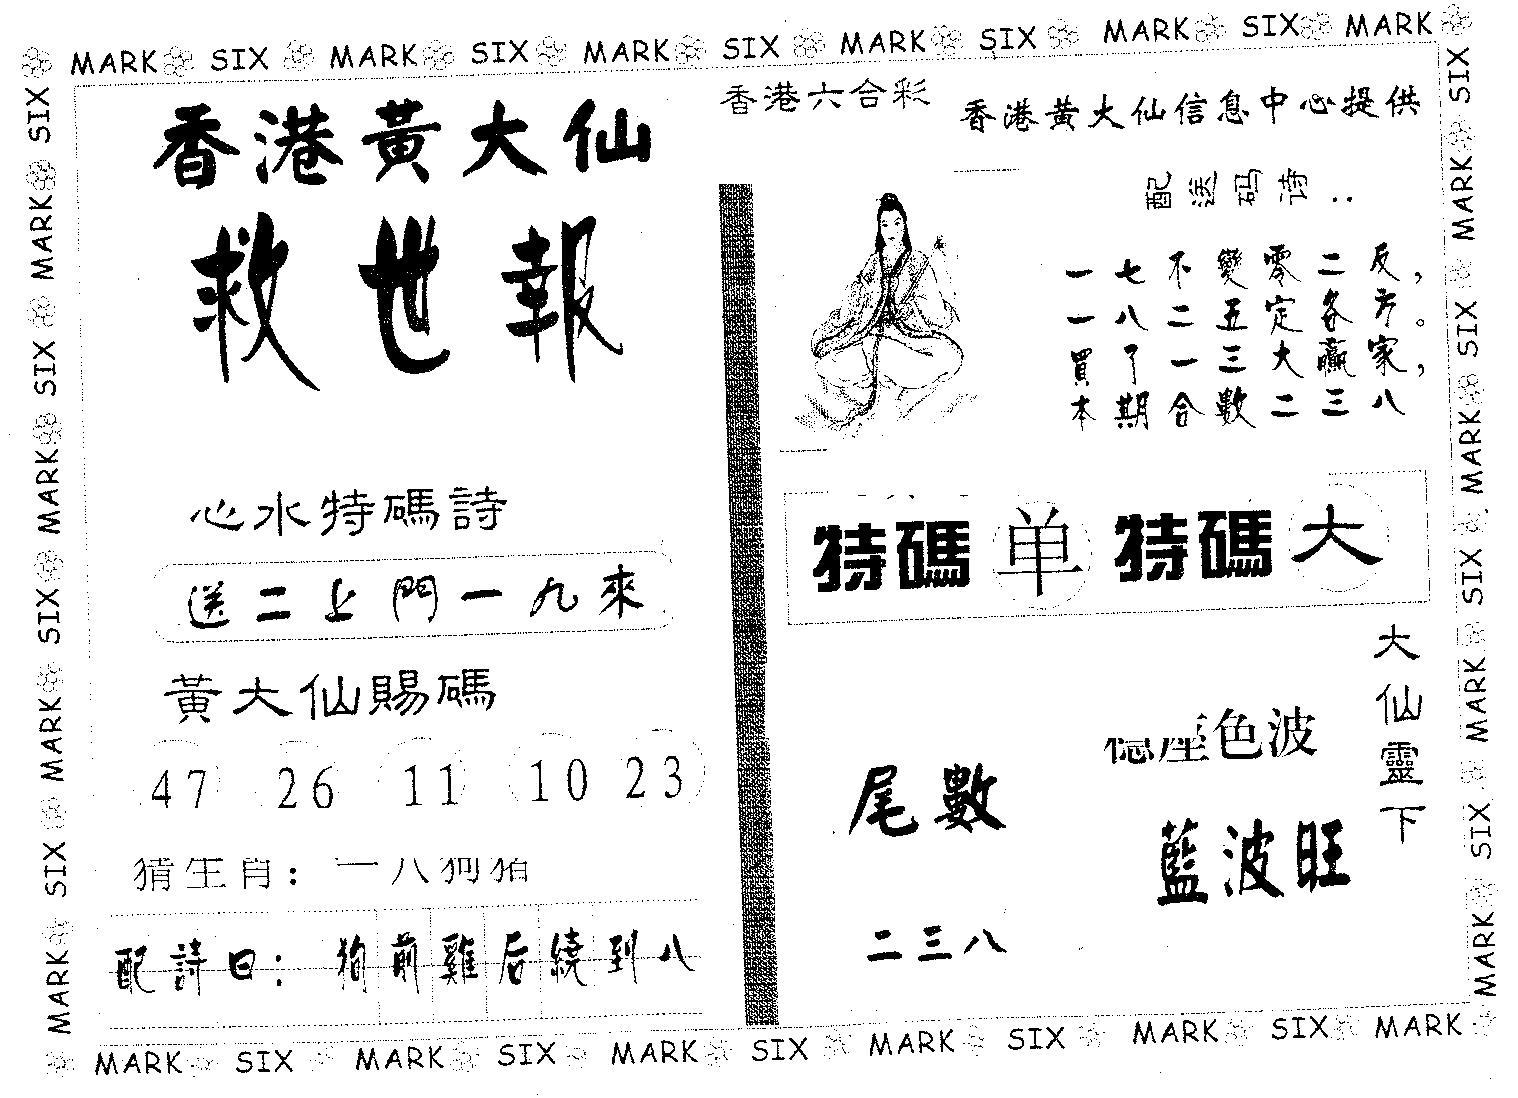 MARK SIX MARK SIX MARK SIX MARK SIX MARK SIX MARK
香港黃大仙
救世報
心水特碼詩
送二上門一九來
黃大仙賜碼
47 26 11 10 23
猜生肖: 一八狗猪
配詩曰: 狗前雞后繞到八
香港六合彩
香港黃大仙信息中心提供
配送码诗..
一七不變零二反,
一八二五定各方。
買了一三大贏家,
本期合數二三八
特碼单 特碼大
大仙靈下
色波
藍波旺
尾數
二三八
SIX MARK SIX MARK SIX MARK SIX MARK
SIX MARK SIX MARK SIX MARK SIX MARK
MARK SIX MARK SIX MARK SIX MARK SIX MARK SIX MARK